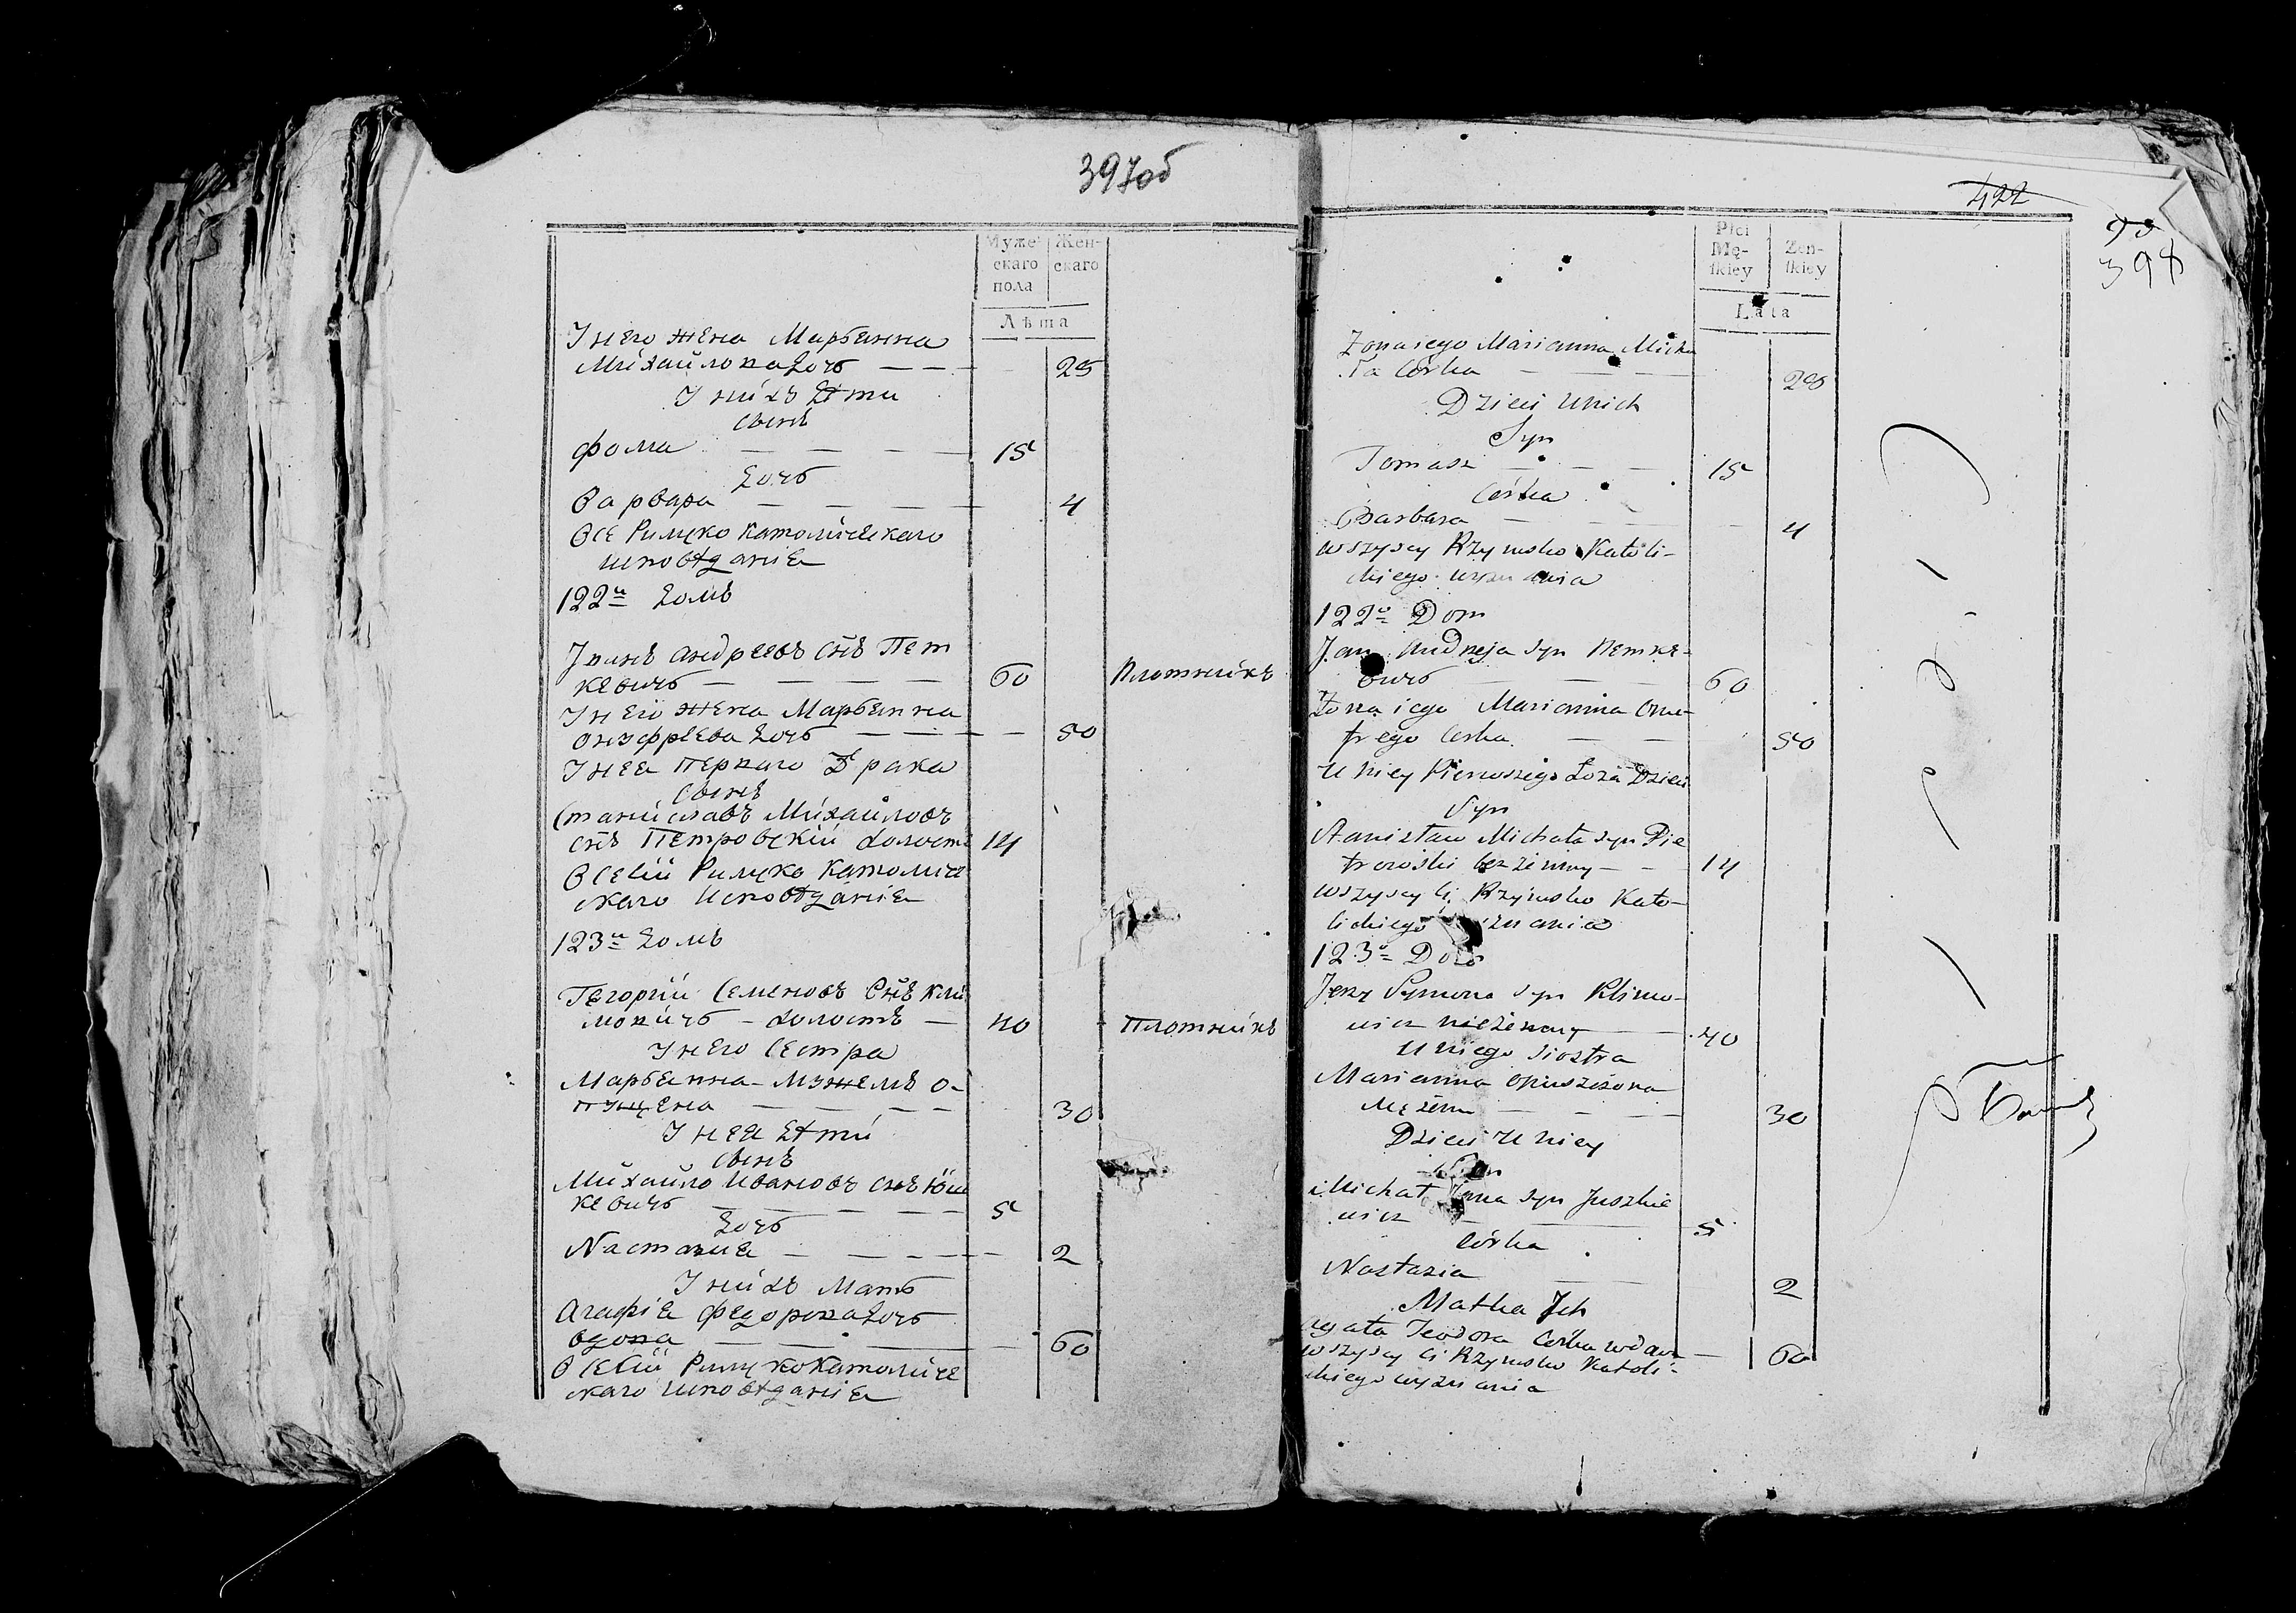 397об
Муже- Жен-
скаго скаго
пола
Лѣта
Інего жена Марьянна
Михайловадочь — — — 25
Іних дѣти
сынъ
Фома — — — — 15
дочь
Варвара — — — — 4
Все Римско Католическаго
исповѣданія
122й домъ
Іванъ Андреевъ снъ Пет
кевичь — — — — 60 Плотникъ
Інего жена Марьянна
Онуфрѣева дочь — — — — 50
Інея перваго брака
сынъ
Станиславъ Михайловъ
снъ Петровскій холостъ 14
Всесіи Римско Католиче
скаго исповѣданія
123й домъ
Гегоргіи Семеновъ Снъ Кли
мовичь — холостъ — 40 Плотникъ
Інего Сестра
Марьянна — мужемъ о-
пущена — — — — 30
Інея дѣти
сынъ
Михайло Ивановъ снъ Юш
кевичь — — — — — 5
дочь
Настазия — — — — — 2
Іних Мать
Агафія Федоровадочь
вдова — — — 60
Всесіи РимскоКатоличе
скаго исповѣданія
422
398
Płci
Mę- Żeń-
ſkiey ſkiey
Lata
Zonaiego Marianna Micha
ła Córka — — — 25
Dzieci Unich
Syn
Tomasz — — — 15
Córka
Barbara — — — 4
wszyscy Rzymsko Katoli-
ckiego wyznania
122o Dom
Jan Andrzeja syn Петке-
вичь — — 60
Żona iego Marianna Onu-
frego Corka — — 50
U niey Pierwszego Łoża Dzieci
Syn
Stanisław Michała syn Pie
trowski bezżenny — — 14
wszyscy ci Rzymsko Kato-
lickiego wyznania
123o Dom
Jerzy Symona syn Klimo-
wicz nieżenaty — — 40
U niego Siostra
Marianna opuszczona
Mężem — — — 30
Dzieci U niey
Syn
Michał Jana syn Juszkie
wicz — — 5
Córka
Nastazia — — 2
Matka Ich
Agata Teodora Córka wdowa — 60
wszyscy ci Rzymsko Katoli-
ckiego wyznania